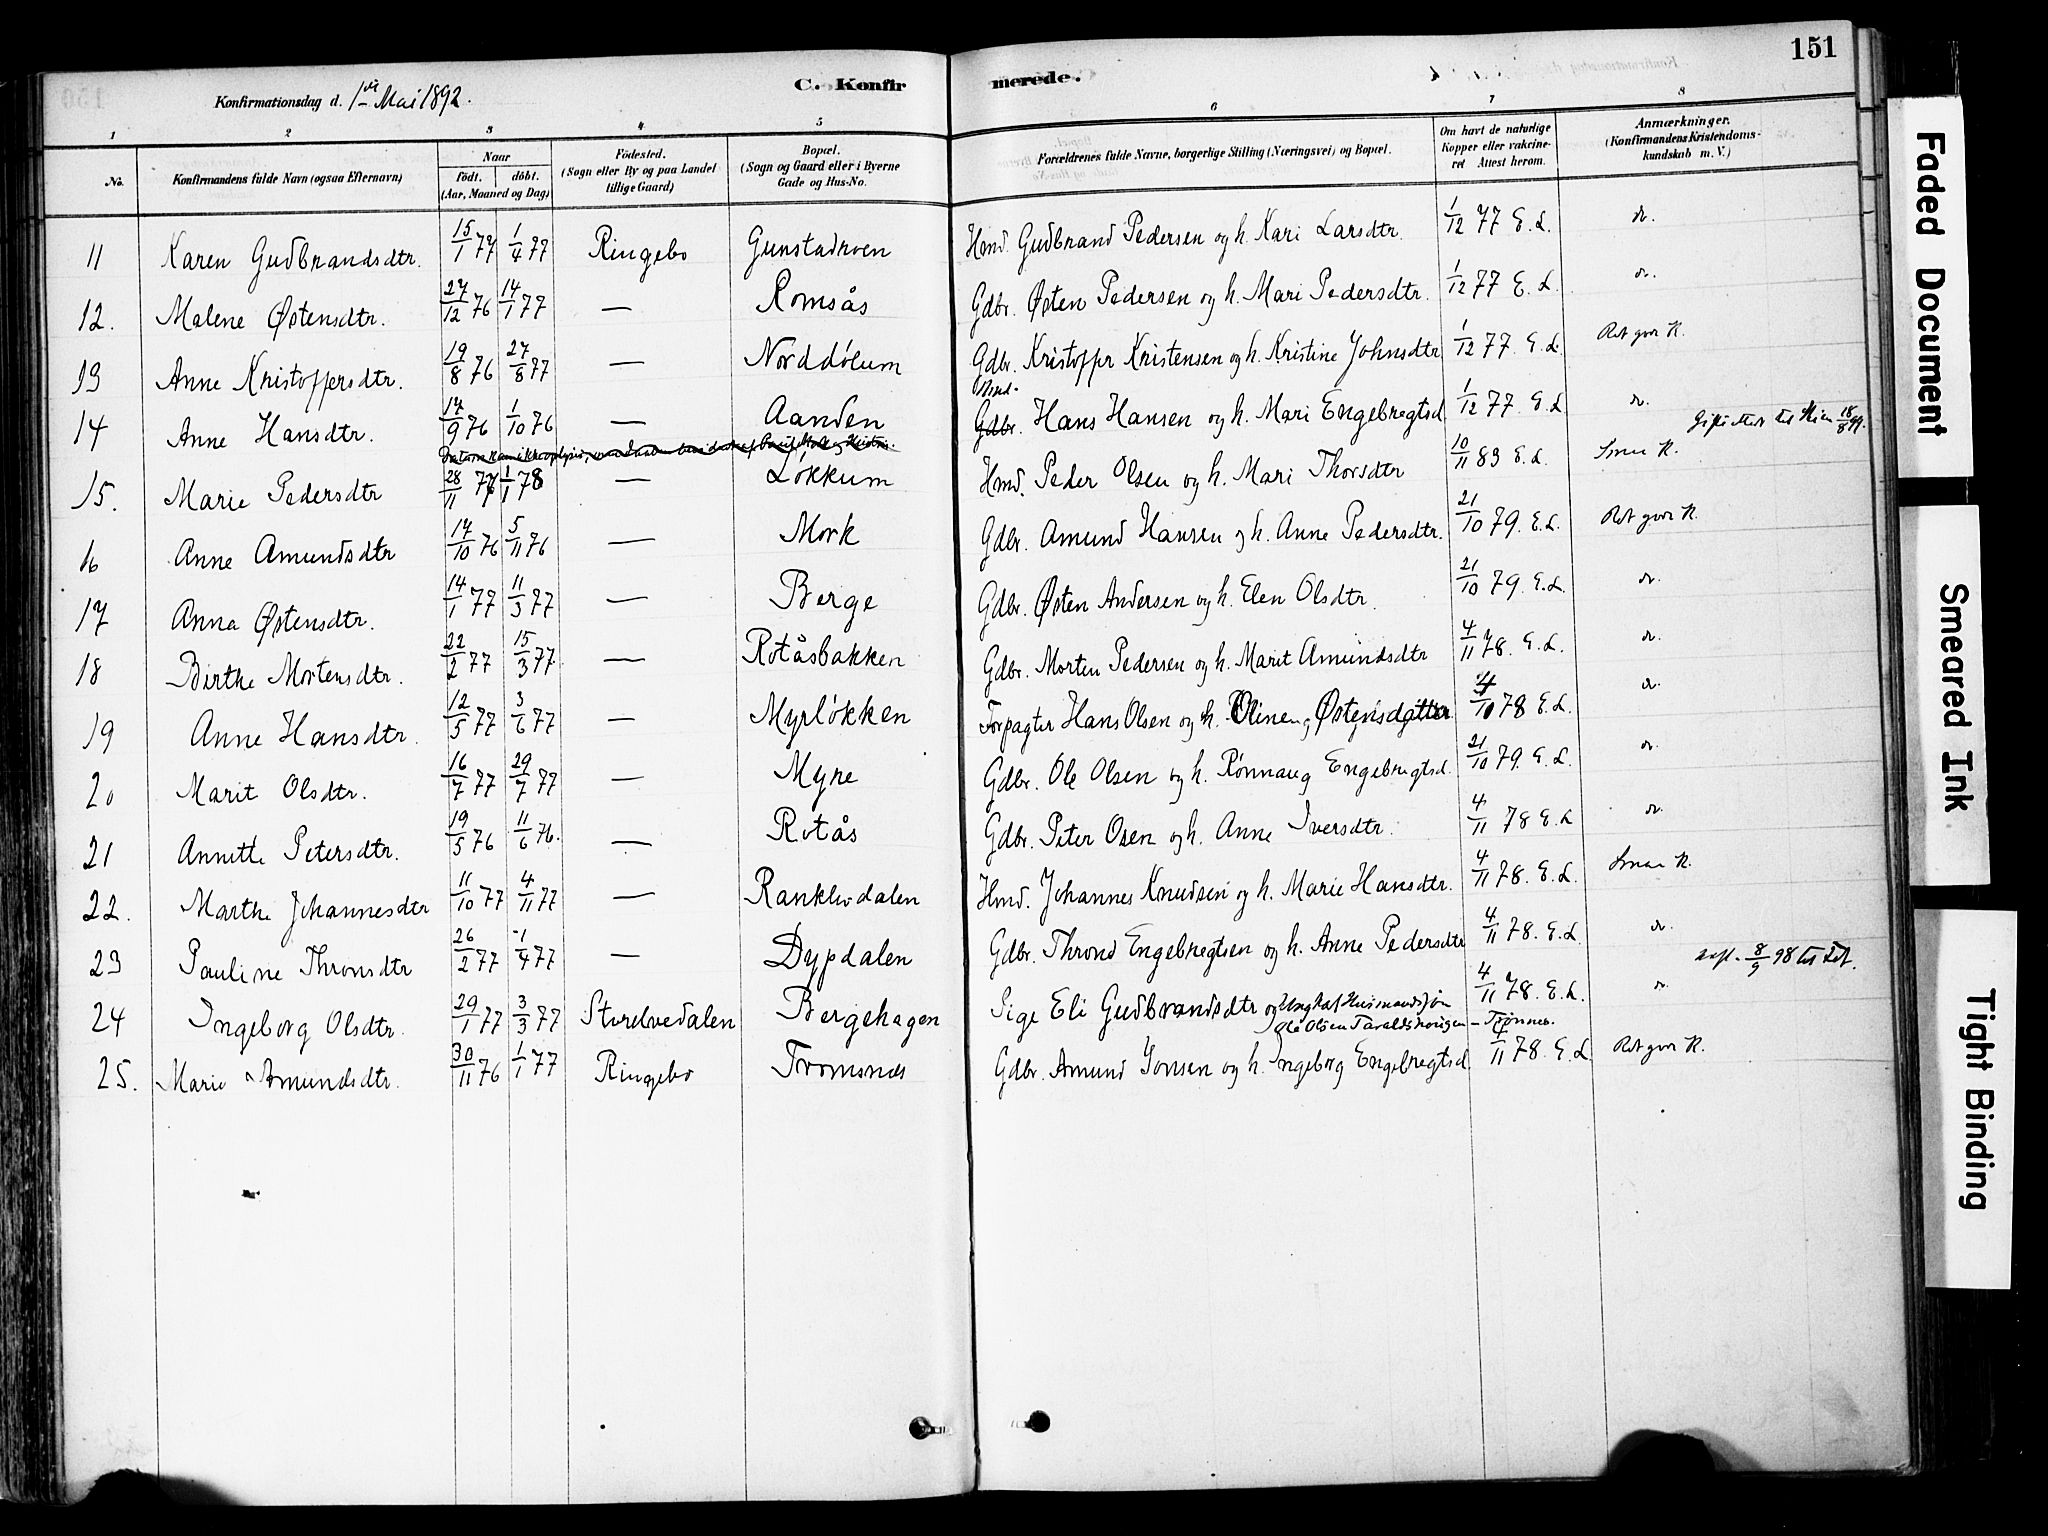 151
Konfirmationsdag d. 1ste Mai 1892.
C. Konfirmerede.
1 2 3 4 5 6 7 8
No.
Konfirmandens fulde Navn (ogsaa Efternavn)
Naar
födt. döbt.
(Aar, Maaned og Dag)
Födested.
(Sogn eller By og paa Landet tillige Gaard)
Bopæl.
(Sogn og Gaard eller i Byerne Gade og Hus-No.
Forældrenes fulde Navne, borgerlige Stilling (Næringsvei) og Bopæl.
Om havt de naturlige Kopper eller vakcineret Attest herom.
Anmærkninger.
(Konfirmandens Kristendomskundskab m. V.)
11 Karen Gudbrandsdtr. 15/1 77 1/4 77 Ringebo Gunstadroen Hmd. Gudbrand Pedersen og h. Kari Larsdtr. 1/12 77 E. L. do.
12. Malene Østensdtr. 27/12 76 14/1 77 — Romsås Gdbr. Østen Pedersen og h. Mari Pedersdtr. 1/12 77 E. L. do.
13 Anne Kristoffersdtr. 19/8 76 27/8 77 — Norddólum Gdbr. Kristoffer Kristensen og h. Kristine Johnsdtr 1/12 77. E. L. Ret god K.
Hmd.
14 Anne Hansdtr. 17/9 76 1/10 76 — Aanden Gdbr. Hans Hansen og h. Mari Engebregtsd 1/12 77. E. L do.
15. Marie Pedersdtr 28/11 77 1/1 78 — Lökkum Hmd. Peder Olsen og h. Mari Thorsdtr 10/11 83 E. L. Smuk K.
16 Anne Amundsdtr 14/10 76 5/11 76 — Mork Gdbr. Amund Hansen og h. Anne Pedersdtr. 21/10 79. E. L. Ret god K.
17 Anna Østensdtr. 14/1 77 11/3 77 — Berge Gdbr. Østen Andersen og h. Elen Olsdtr. 21/10 79. E. L. do.
18 Birthe Mortensdtr. 22/2 77 15/3 77 — Rotåsbakken Gdbr. Morten Pedersen og h. Marit Amundsdtr 4/11 78. E. L. do.
19 Anne Hansdtr. 12/5 77 3/6 77 — Myrlökken Forpagter Hans Olsen og h. Oline Østensdatter 4/10 78 E. L. do.
20 Marit Olsdtr. 16/7 77 29/7 77 — Myre Gdbr. Ole Olsen og h. Rønnaug Engebregtsd. 21/10 79. E. L. do.
21 Annette Petersdtr. 19/5 76 11/6 76. — Rotås Gdbr. Peter Osen og h. Anne Iversdtr. 4/11 78 E. L do.
22. Marthe Johannesdtr 11/10 77 4/11 77 — Ranklevdalen Hmd. Johannes Knudsen og h. Marie Hansdtr. 4/11 78. E. L. Smuk K.
23 Pauline Thronsdtr 26/2 77 1/4 77 — Dypdalen Gdbr. Thrond Engebregtsen og h. Anne Pedersdtr 4/11 78. E. L. do.
24 Ingeborg Olsdtr. 29/1 77 3/3 77 Storelvedalen Bergehagen Pige Eli Gudbrandsdtr og Ungkarl Husmandssøn 4/11 78. E. L. do.
Ole Olsen
25. Marie Amundsdtr. 30/11 76 1/1 77 Ringebo Tromsnes Gdbr. Amund Jonsen og h. Ingeborg Engebregtsd 4/11 78. E. L Ret god K.
Faded Document
Smeared Ink
Tight Binding